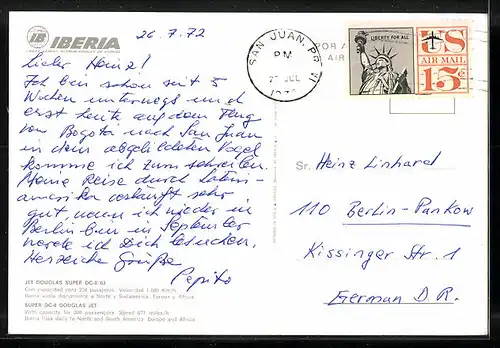 IB IBERIA
26.7.72
Lieber Heinz!
Ich bin schon seit 5
Wochen unterwegs und
erst heute auf dem Flug
von Bogotá nach San Juan
in dem abgebildeten Vogel
komme ich zum schreiben.
Meine Reise durch Latein-
amerika verläuft sehr
gut, wenn ich wieder in
Berlin bin im September
werde ich Dich besuchen.
Herzliche Grüße
Pepito
JET DOUGLAS SUPER DC-8/63
Con capacidad para 208 pasajeros. Velocidad 1.080 Km/h
Iberia vuela diariamente a Norte y Sudamerica, Europa y Africa
SUPER DC-8 DOUGLAS JET
With capacity for 208 passengers. Speed 671 miles/h
Iberia flies daily to North and South America, Europe and Africa
SAN JUAN, PR
PM
JUL
LIBERTY FOR ALL
US
AIR MAIL
15¢
Sr. Heinz Linhard
110 Berlin-Pankow
Kissinger Str. 1
German D.R.